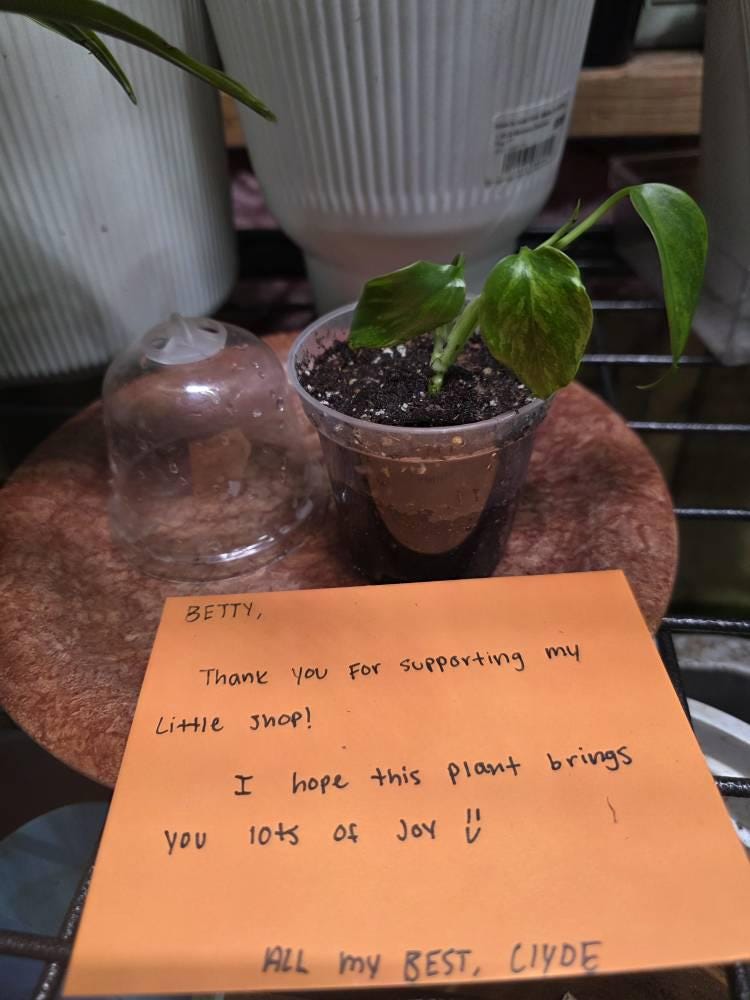 BETTY,
Thank you for supporting my
Little shop!
I hope this plant brings
you lots of Joy
ALL my BEST, ClYDE